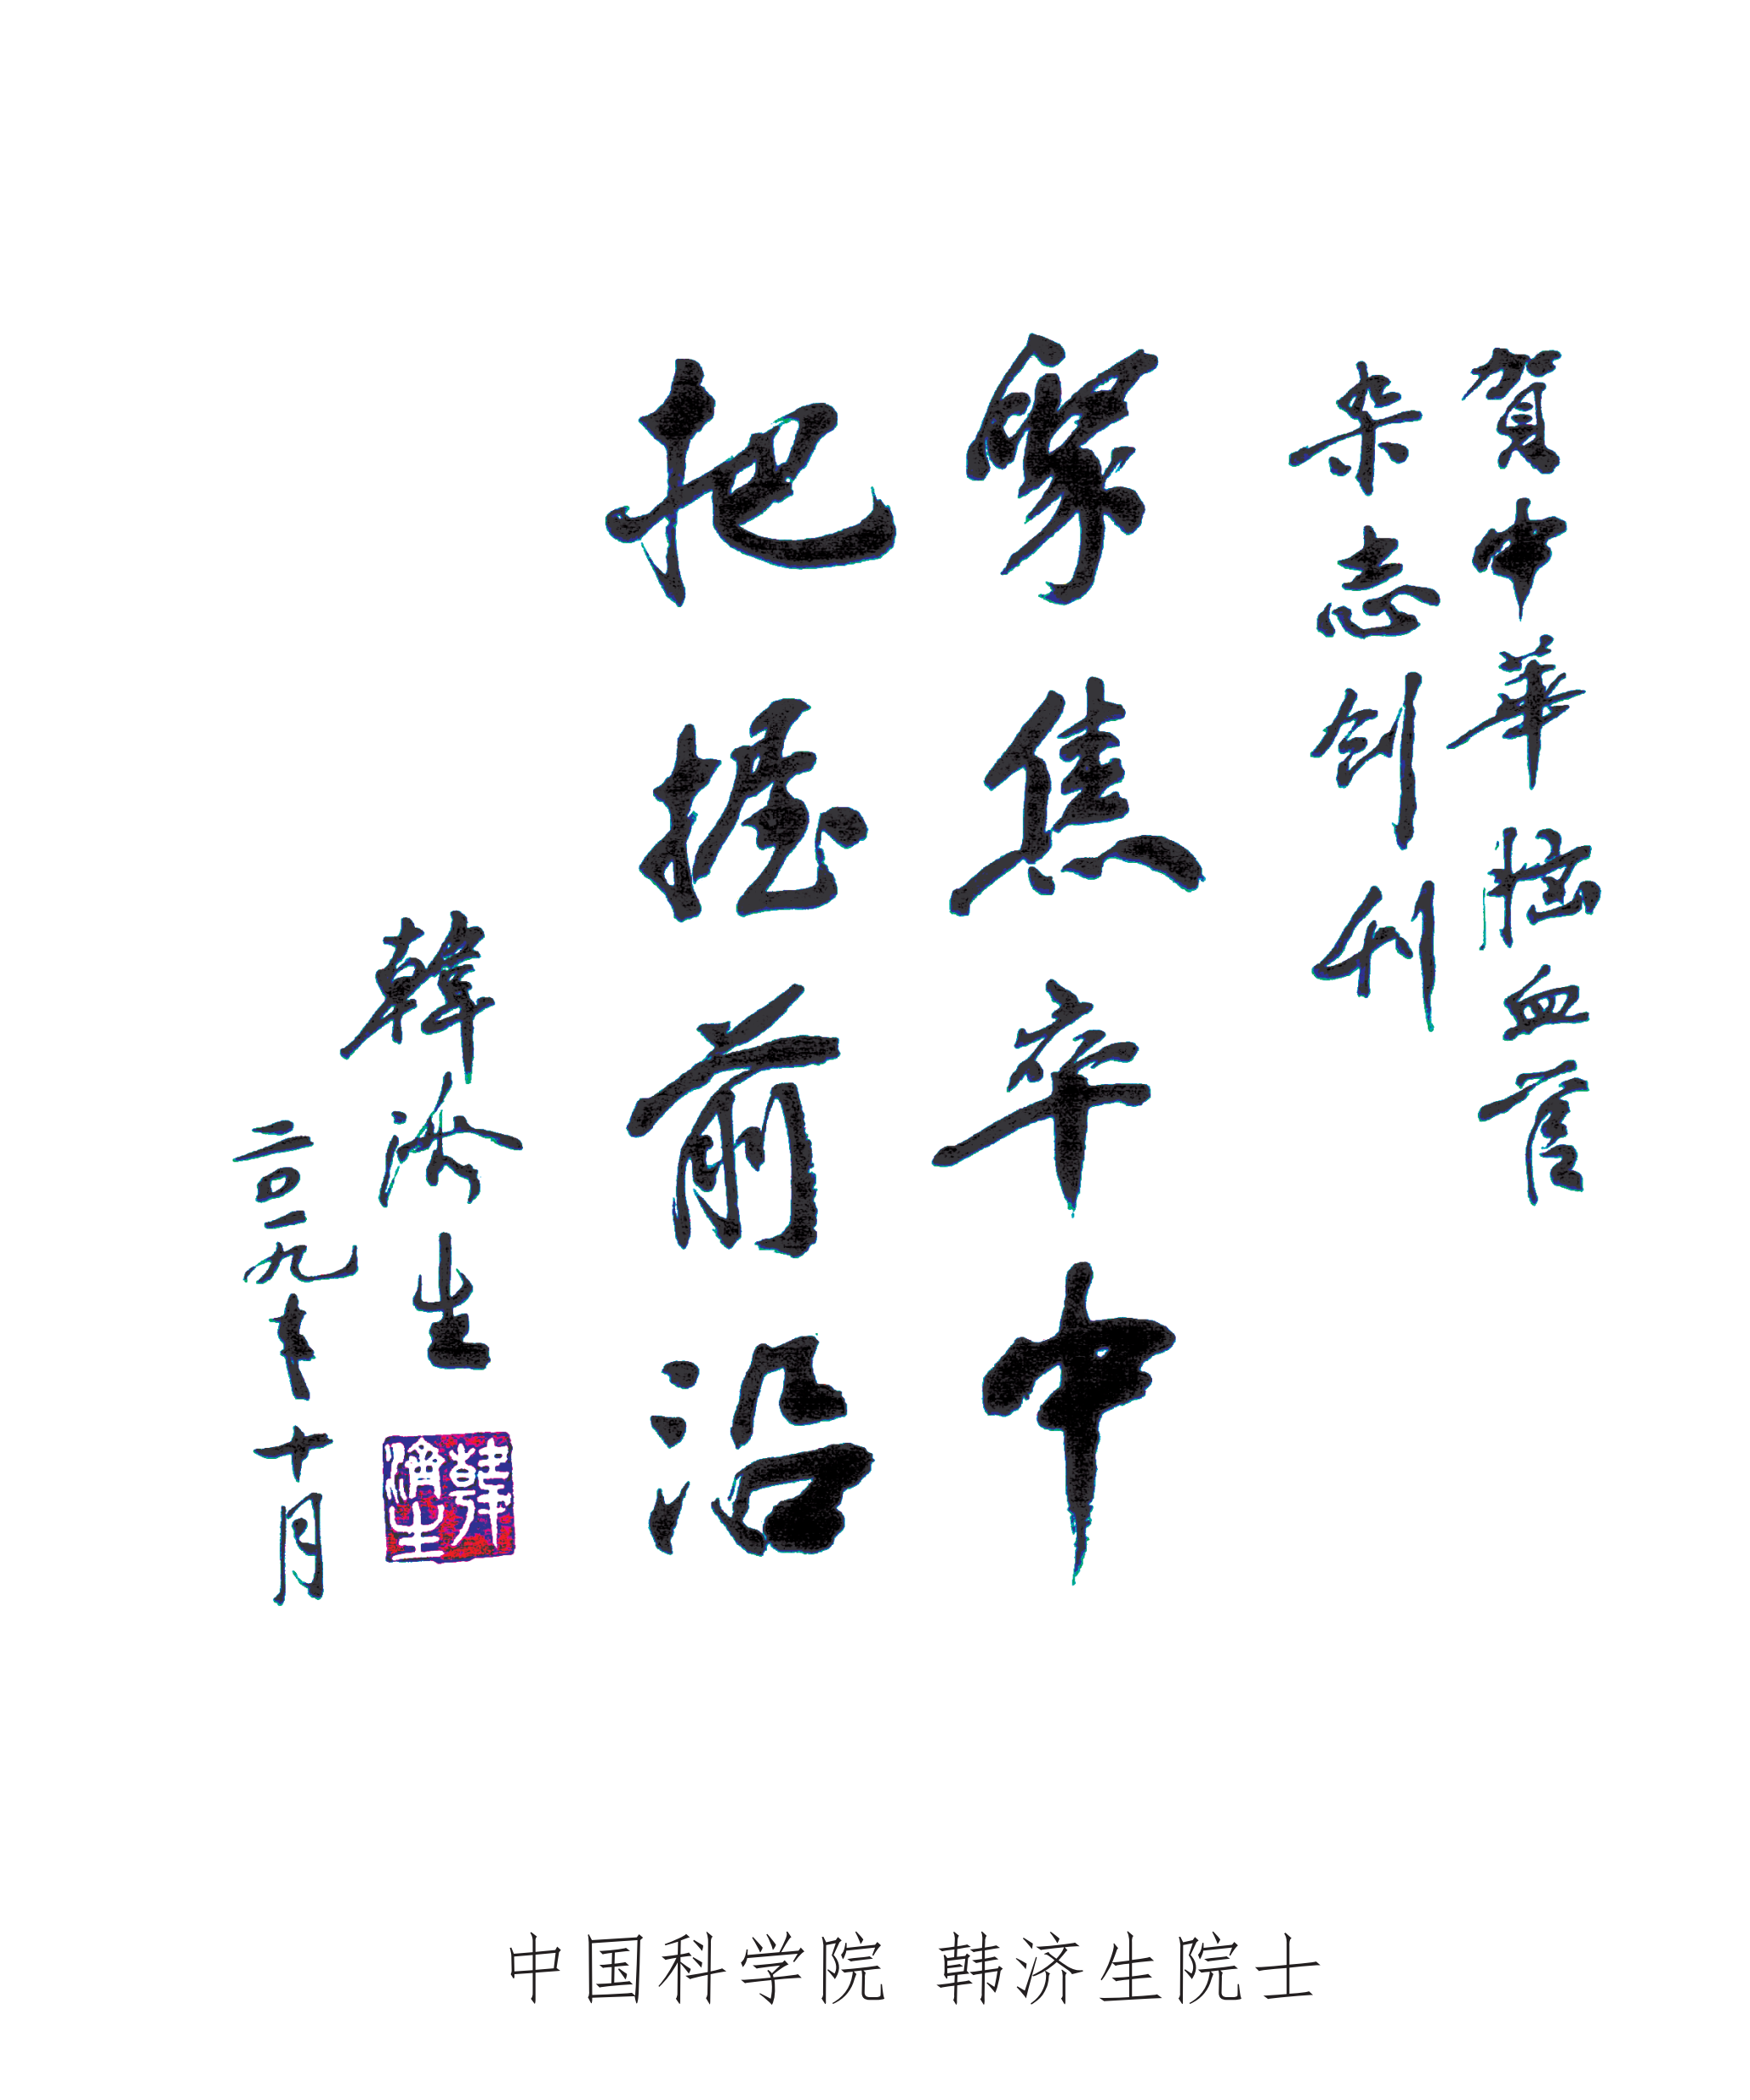 賀中華脑血管
杂志创刊
聚焦卒中
把握前沿
韓济生
二〇一九年十月
韓濟生
中国科学院 韩济生院士